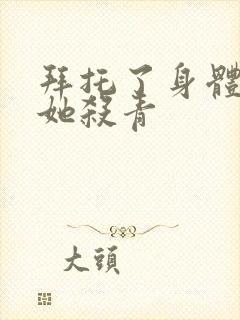 拜托了身體
她殺青
大頭